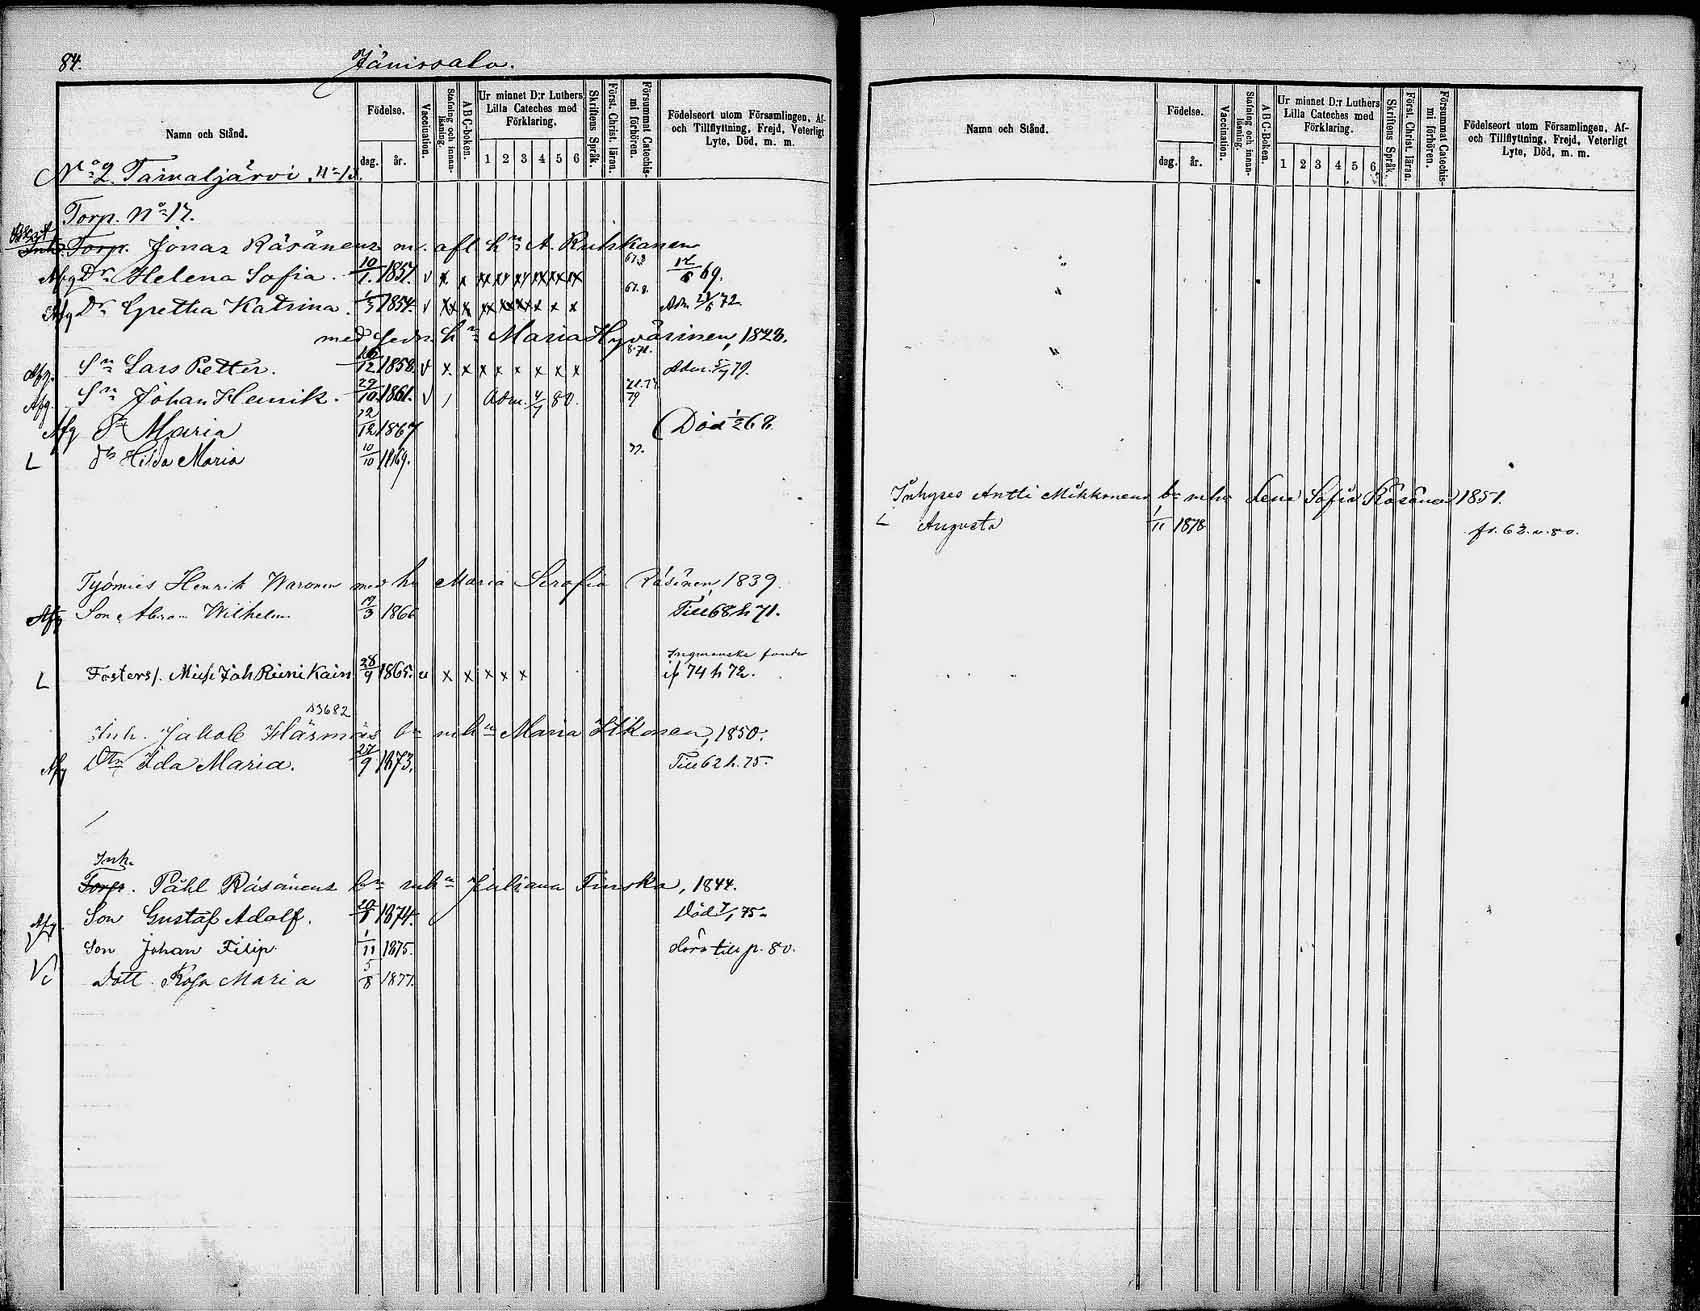 84.
Jänissalo.
Namn och Stånd.
Födelse.
dag. år.
Vaccination.
Stafning och innanläsning.
ABC-boken.
Ur minnet D:r Luthers Lilla Cateches med Förklaring.
1 2 3 4 5 6
Skriftens Språk.
Först. Christ. läran.
Försummat Catechismi förhören.
Födelseort utom Församlingen, Af- och Tillflyttning, Frejd, Veterligt Lyte, Död, m. m.
Nº 2. Taivaljärvi
Torp. Nº 17.
Torp. Jonas Räsänens m. afl. hu A. Rutskanen
Afg Dr Helena Sofia. 10/1. 1857. v x x 67.8 12/6 69.
Afg Dr Gretha Katrina. 1/3 1854. v 67.8. Adm. 24/6 72
med sedn. hu Maria Hyvärinen, 1828.
Afg. Sn Lars Petter. 1858. v x x x x x x x x 8.71. Adm. 5/7 79.
Afg. Sn Johan Henrik. 29/10. 1861. v / Adm. 4/7 80. 79
Afg Dr Maria 12/12 1867 (Död 1/2 68.
L dr Hilda Maria 10/10 1869. 77.
Tyómies Henrik Waronen med hu Maria Serafia Räsänen, 1839.
Afg Son Abram Wilhelm 19/3 1866 Till 68 h 71.
L Fosters/. Mich Joh Reinikain 28/9 1865. v x x x x x if 74 h 72.
13682
Inh. Jakob Härmäs bn mhu Maria Itkonen, 1850.
Afg Dtr Ida Maria. 27/9 1873. Till 62 h. 75.
Inh.
Torp. Påhl Räsänens bn mhu Juliana Finska, 1844.
Afg. Son Gustaf Adolf. 1874. Död 7/1 75
Son Johan Filip 1/11 1875. döro till p. 80.
Dott. Rosa Maria 5/8 1877.
Namn och Stånd.
Födelse.
dag. år.
Vaccination.
Stafning och innanläsning.
ABC-boken.
Ur minnet D:r Luthers Lilla Cateches med Förklaring.
1 2 3 4 5 6
Skriftens Språk.
Först. Christ. läran.
Försummat Catechismi förhören.
Födelseort utom Församlingen, Af- och Tillflyttning, Frejd, Veterligt Lyte, Död, m. m.
Inhyses Antti Mikkonens bn mhu Lena Sofia Räsänen 1851.
L Augusta 1/11 1878 fr. 63. n. 80.